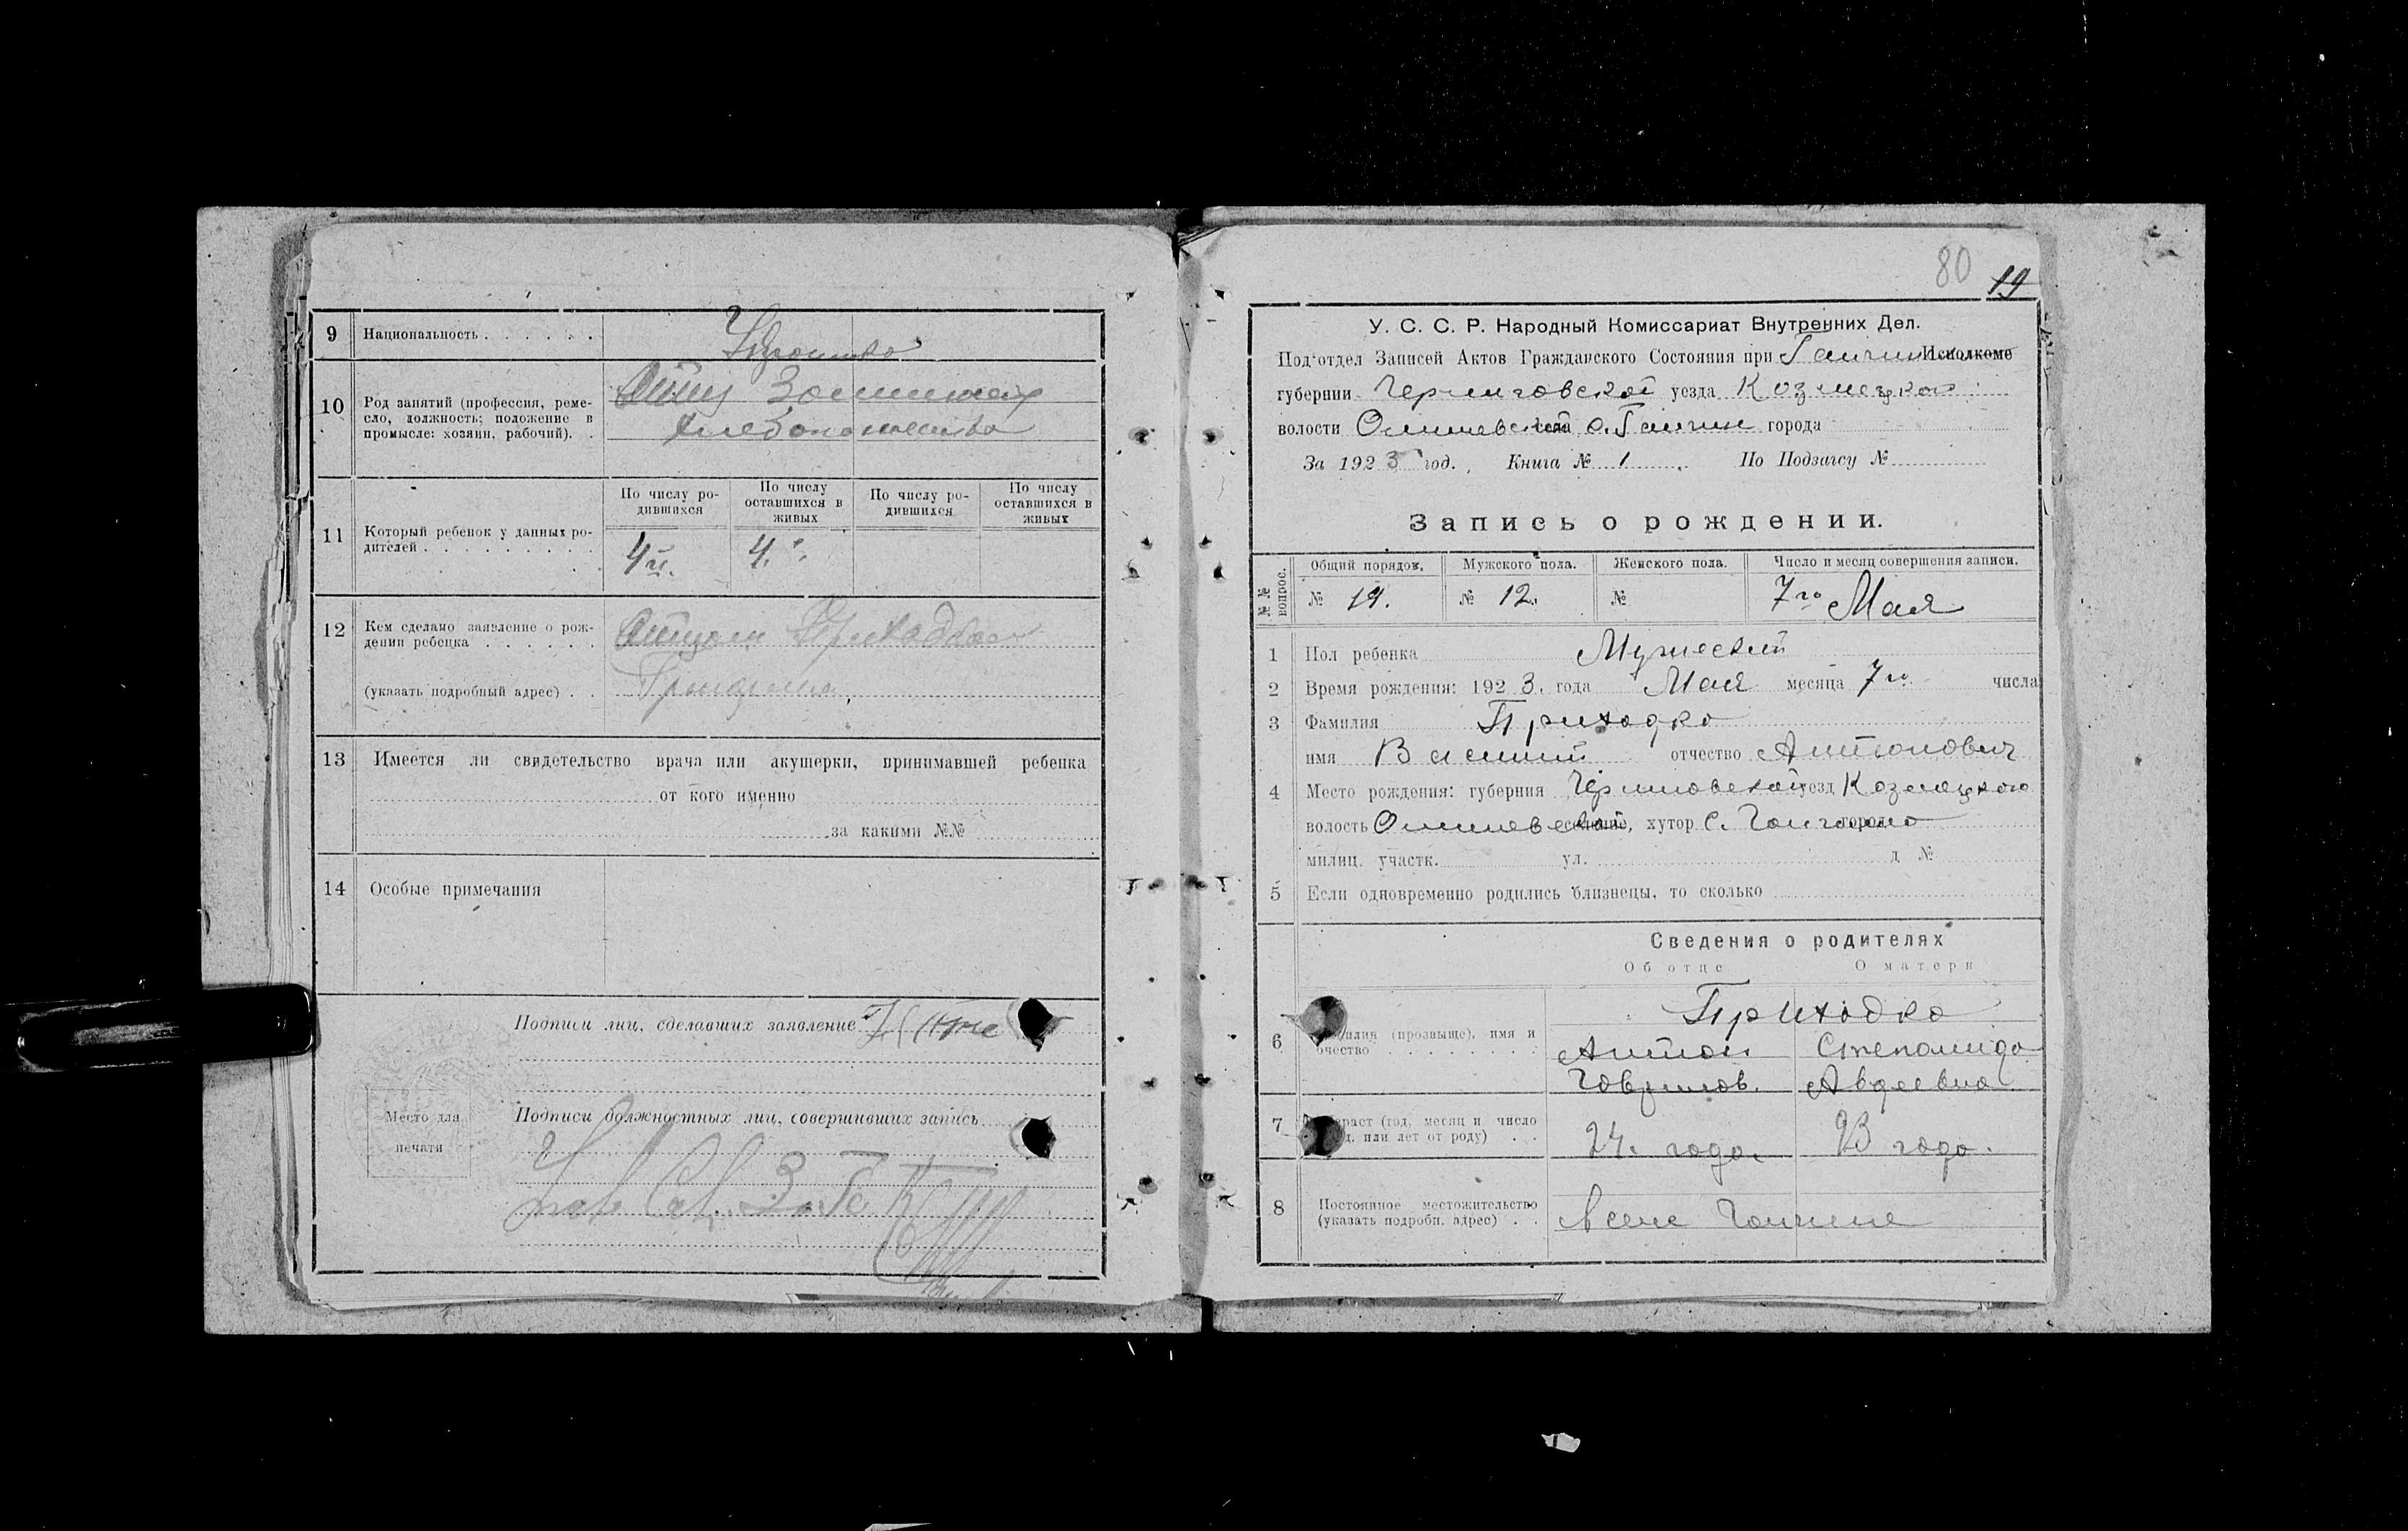 9 Национальность . . . . . .
10 Род занятий (профессия, реме-
сло, должность; положение в
промысле: хозяин, рабочий). .
Отец
хлебопашество
11 Который ребенок у данных ро-
дителей . . . . . . . . .
По числу ро-
дившихся
По числу
оставшихся в
живых
По числу ро-
дившихся
По числу
оставшихся в
живых
4й. 4.
12 Кем сделано заявление о рож-
дении ребенка . . . . . .
Отцом
(указать подробный адрес) . .
13 Имеется ли свидетельство врача или акушерки, принимавшей ребенка
от кого именно
за какими №№
14 Особые примечания
Подписи лиц, сделавших заявление
Место для
печати
Подписи должностных лиц, совершивших запись
80 19
У. С. С. Р. Народный Комиссариат Внутренних Дел.
Подотдел Записей Актов Гражданского Состояния при Исполкоме
губернии Черниговской уезда Козелецкой
волости Олишевской села с. города
За 1923 год. Книга № 1 По Подзагсу №
Запись о рождении.
№№ вопрос.
Общий порядок. Мужского пола. Женского пола. Число и месяц совершения записи.
№ 19. № 12. № 7го Мая
1 Пол ребенка Мужеский
2 Время рождения: 1923. года Мая месяца 7го числа
3 Фамилия Приходко
имя Василий отчество Антонович
4 Место рождения: губерния Черниговской уезд Козелецкого
волость Олишевской селение, хутор с. город
милиц. участк. ул. д №
5 Если одновременно родились близнецы, то сколько
Сведения о родителях
Об отце О матери
6 (прозвище), имя и
Приходко
Антон Степанида
Гаврилов. Авдеевна
7 (год, месяц и число
или лет от роду) . .
24. года. 23 года.
8 Постоянное местожительство
(указать подробн. адрес) . .
В селе